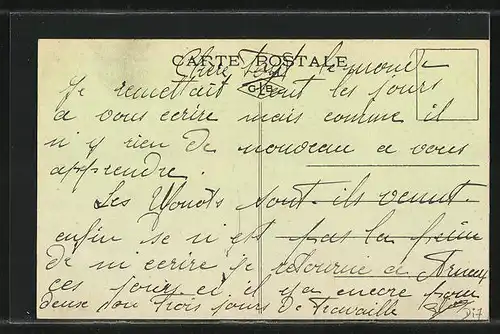 CARTE POSTALE
Chere tout le monde
C-B
Je remettait tout les jours
a vous ecrire mais comme il
n i y rien de nouveau a vous
apprendre.
Les sont-ils venut
enfin se n i est pas la peine
de m ecrire je retourne a
ces jours ci il y a encore pour
deux ou trois jours de travaille